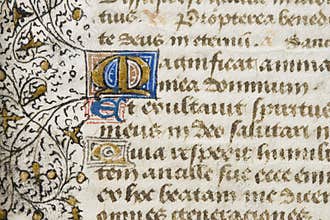 tuis Propterea bened
te deus in eternū San
Magnificat anima
mea dominum
Et exultauit spiritus
meus in deo salutari m
Quia respexit humili
tem ancille sue ecce eni
ex hoc beatam me dicen
omnes generationes